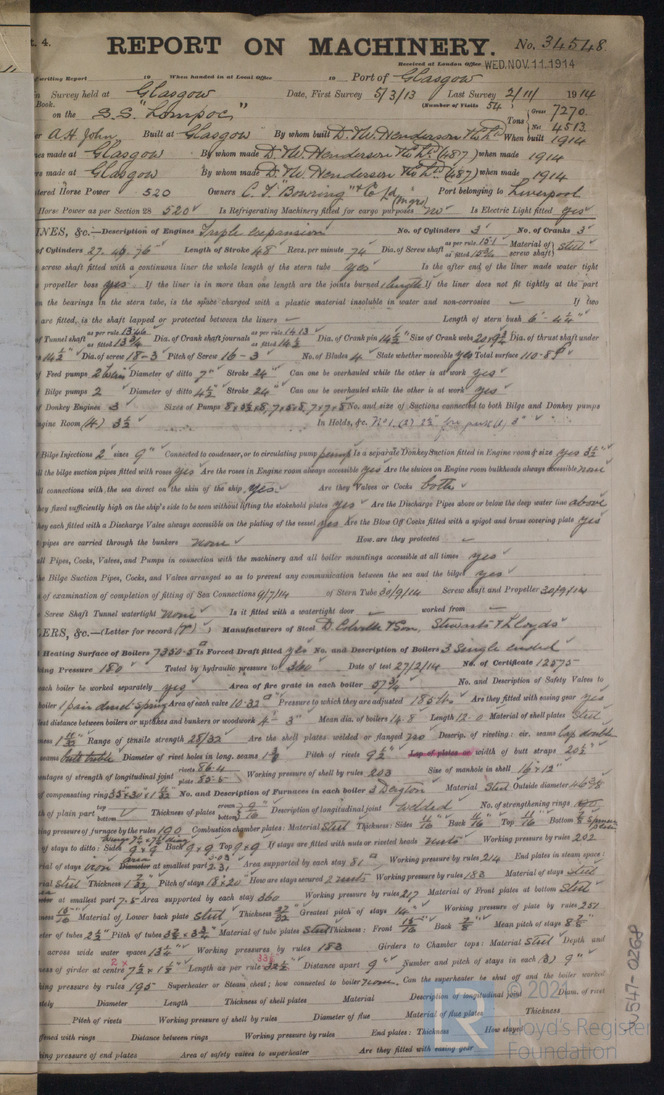 t. 4.
REPORT ON MACHINERY. No. 34548
Received at London Office WED. NOV. 11. 1914
writing Report 19 When handed in at Local Office 19 Port of Glasgow
Survey held at Glasgow Date, First Survey 5/3/13 Last Survey 2/11/ 1914
Book. (Number of Visits 54)
on the S.S. "Lompoc" Tons Gross 7270 Net 4513
A.H. John Built at Glasgow By whom built D. & W. Henderson & Co Ld When built 1914
es made at Glasgow By whom made D. & W. Henderson & Co Ld (487) when made 1914
rs made at Glasgow By whom made D. & W. Henderson & Co Ld (487) when made 1914
tered Horse Power 520 Owners C. T. Bowring & Co Ld (Mgrs) Port belonging to Liverpool
Horse Power as per Section 28 520 Is Refrigerating Machinery fitted for cargo purposes no Is Electric Light fitted yes
INES, &c.—Description of Engines Triple expansion No. of Cylinders 3 No. of Cranks 3
of Cylinders 27. 46. 76 Length of Stroke 48 Revs. per minute 74 Dia. of Screw shaft as per rule 15.1 as fitted Material of screw shaft steel
screw shaft fitted with a continuous liner the whole length of the stern tube yes Is the after end of the liner made water tight
propeller boss yes If the liner is in more than one length are the joints burned If the liner does not fit tightly at the part
n the bearings in the stern tube, is the space charged with a plastic material insoluble in water and non-corrosive If two
are fitted, is the shaft lapped or protected between the liners Length of stern bush
Tunnel shaft as per rule 13.46 as fitted Dia. of Crank shaft journals as per rule 14.13 as fitted 14½ Dia. of Crank pin 14½" Size of Crank webs Dia. of thrust shaft under
14½" Dia. of screw 18-3 Pitch of Screw 16-3 No. of Blades 4 State whether moveable yes Total surface 110.8
Feed pumps 2 Diameter of ditto 7" Stroke 24" Can one be overhauled while the other is at work yes
Bilge pumps 2 Diameter of ditto 4½" Stroke 24" Can one be overhauled while the other is at work yes
Donkey Engines 3 Sizes of Pumps No. and size of Suctions connected to both Bilge and Donkey pumps
ngine Room (4) 3½ In Holds, &c.
Bilge Injections 2 sizes 9" Connected to condenser, or to circulating pump pump Is a separate Donkey Suction fitted in Engine room & size yes 3½"
ll the bilge suction pipes fitted with roses yes Are the roses in Engine room always accessible yes Are the sluices on Engine room bulkheads always accessible none
ll connections with the sea direct on the skin of the ship yes Are they Valves or Cocks both
they fixed sufficiently high on the ship's side to be seen without lifting the stokehold plates yes Are the Discharge Pipes above or below the deep water line above
hey each fitted with a Discharge Valve always accessible on the plating of the vessel yes Are the Blow Off Cocks fitted with a spigot and brass covering plate yes
pipes are carried through the bunkers none How are they protected
ll Pipes, Cocks, Valves, and Pumps in connection with the machinery and all boiler mountings accessible at all times yes
he Bilge Suction Pipes, Cocks, and Valves arranged so as to prevent any communication between the sea and the bilges yes
of examination of completion of fitting of Sea Connections 9/7/14 of Stern Tube 30/9/14 Screw shaft and Propeller 30/9/14
Screw Shaft Tunnel watertight none Is it fitted with a watertight door worked from
LERS, &c.—(Letter for record (r)) Manufacturers of Steel D. Colville & Son, Stewarts & Lloyds
Heating Surface of Boilers 7350.5 Is Forced Draft fitted yes No. and Description of Boilers 3 Single ended
king Pressure 180 Tested by hydraulic pressure to 360 Date of test 27/2/14 No. of Certificate 12575
ach boiler be worked separately yes Area of fire grate in each boiler 57¾ No. and Description of Safety Valves to
boiler 1 pair direct spring Area of each valve 10.32 Pressure to which they are adjusted 185 lb. Are they fitted with easing gear yes
est distance between boilers or uptakes and bunkers or woodwork Mean dia. of boilers 14.8 Length 12.0 Material of shell plates steel
ness Range of tensile strength 28/32 Are the shell plates welded or flanged no Descrip. of riveting: cir. seams lap double
seams butts treble Diameter of rivet holes in long. seams Pitch of rivets 9½" Lap of plates or width of butt straps 20½"
entages of strength of longitudinal joint rivets 86.4 plate 85.5 Working pressure of shell by rules 203 Size of manhole in shell 16 × 12"
of compensating ring No. and Description of Furnaces in each boiler 3 Deighton Material Steel Outside diameter
th of plain part top bottom Thickness of plates crown bottom Description of longitudinal joint welded No. of strengthening rings
ing pressure of furnace by the rules 190 Combustion chamber plates: Material Steel Thickness: Sides Back Top Bottom
of stays to ditto: Sides 9 × 9 Back 9 × 9 Top 9 × 9 If stays are fitted with nuts or riveted heads nuts Working pressure by rules 202
ial of stays iron Diameter at smallest part Area supported by each stay 81 Working pressure by rules 214 End plates in steam space:
ial steel Thickness Pitch of stays 18 × 20 How are stays secured 2 nuts Working pressure by rules 183 Material of stays steel
at smallest part 7.5 Area supported by each stay 360 Working pressure by rules 217 Material of Front plates at bottom steel
ness Material of Lower back plate steel Thickness Greatest pitch of stays 14" Working pressure of plate by rules 251
eter of tubes 2½" Pitch of tubes Material of tube plates steel Thickness: Front Back Mean pitch of stays
across wide water spaces Working pressures by rules 183 Girders to Chamber tops: Material steel Depth and
ess of girder at centre Length as per rule Distance apart 9" Number and pitch of stays in each (3) 9"
king pressure by rules 195 Superheater or Steam chest; how connected to boiler none Can the superheater be shut off and the boiler worked
ately Diameter Length Thickness of shell plates Material Description of longitudinal joint Diam. of rivet
Pitch of rivets Working pressure of shell by rules Diameter of flue Material of flue plates Thickness
ffened with rings Distance between rings Working pressure by rules End plates: Thickness How stayed
ing pressure of end plates Area of safety valves to superheater Are they fitted with easing gear
© 2021
Lloyd's Register
Foundation